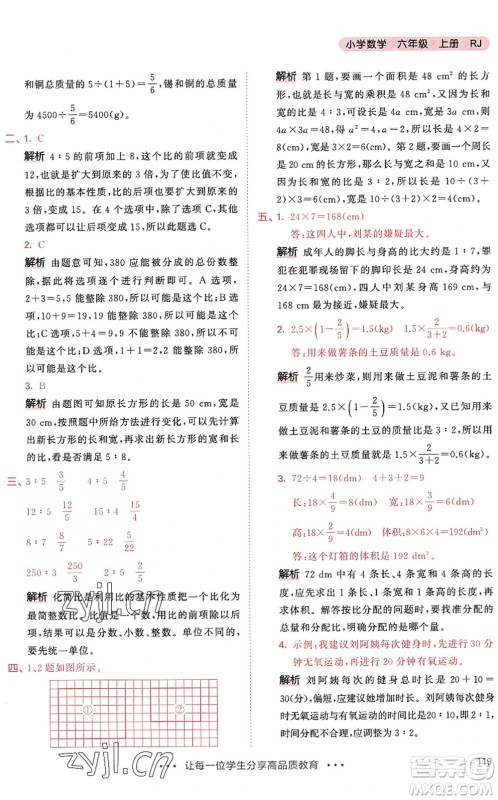 小学数学 六年级 上册 RJ
和铜总质量的 5÷(1+5)=5/6,锡和铜的总质量为
4500÷5/6=5400(g)。
二、1. C
解析 4∶5的前项加上8,比的前项就变成
12,也就是扩大到原来的3倍,变成12。根据
比的基本性质,比的后项也要扩大到原来的
3倍,变成15。所以可以选择C,其他选项
都可以让后项变成15,所以选C。
2. C
解析 由题意可知,380应被分成的总份数整
除,据此对选项逐个进行判断即可。A选项,
2+3=5,5能整除380;B选项,1+9=10,
10能整除380;C选项,5+4=9,9不能整除
380;D选项,1+1=2,2能整除380。所以
选C。
3. B
解析 由题图可知原长方形的长是50 cm,宽
是30 cm,按题中的方法进行变化后,可计算
出新长方形的长和宽,进而计算新长方形的长
和宽的比,比仍然满足5∶8。
三、3∶5 3/5 4∶5 4/5
12∶5 12/5 15∶4 15/4
8∶7 8/7 5∶22 5/22
250∶3 250/3 2∶5 2/5
解析 化简比是利用比的基本性质,把比化为
最简整数比,比的前项、后项可以是整数,也
可以是分数、小数,前项与后项单位不同的,
要先统一单位。
四、1、2题如图所示。
① ②
解析 第1题,要画一个面积是48 cm²的长方
形,也就是长与宽的乘积是48 cm²,又因为长
与宽的比是4∶3,可设长为4a cm,宽为3a cm,
则4a×3a=48,得a²=4,a=2,所以长是4×2=
8(cm),宽是3×2=6(cm)。第2题,要画一个
周长是20 cm的长方形,也就是长与宽之和是
10 cm,又因为长与宽的比是3∶2,10÷(3+
2)=2(cm),所以长是2×3=6(cm),宽是2×
2=4(cm)。
五、1. 24×7=168(cm)
答:这四人中,刘某的嫌疑最大。
解析 成年人的脚长与身高的比大约是1∶7,罪
犯在犯罪现场留下的脚印长是24 cm,则其身高
大约是24×7=168(cm)。四人中刘某身高
168 cm,最接近,嫌疑最大。
2. 2.5×(1-2/5)=1.5(kg) 1.5×2/(3+2)=0.6(kg)
答:用来做薯条的土豆质量是0.6 kg。
解析 2/5用来炒菜,则用来做土豆泥和薯条的土
豆质量是2.5×(1-2/5)=1.5(kg),又因为做土
豆泥与做薯条的土豆的质量比是3∶2,所以用
来做薯条的土豆的质量是1.5×2/(3+2)=
0.6(kg)。
3. 72÷4=18(dm) 4+3+2=9
长:18×4/9=8(dm) 宽:18×3/9=6(dm)
高:18×2/9=4(dm) 体积:8×6×4=192(dm³)
答:这个灯箱的体积是192 dm³。
解析 72 dm中有4条长、4条宽、4条高,因此
求1条长、1条宽、1条高的和时,应先用72÷
4=18(dm),然后再按比分配,计算出长、宽、高
的长度。解决按比分配的问题时,要找准总分配
量和分配的份数。
4. 示例:我建议刘阿姨每次健身时进行20分
钟无氧运动,进行10分钟有氧运动。
解析 刘阿姨每次的健身总时长是20+10=
30(分),可以建议她增加无氧运动的时间,减少
有氧运动的时间。所以可以建议刘阿姨每次健身
时有氧运动与无氧运动的时长比是10∶20=
1∶2。
··· 让每一位学生分享高品质教育 ···
119
zyjl.cn